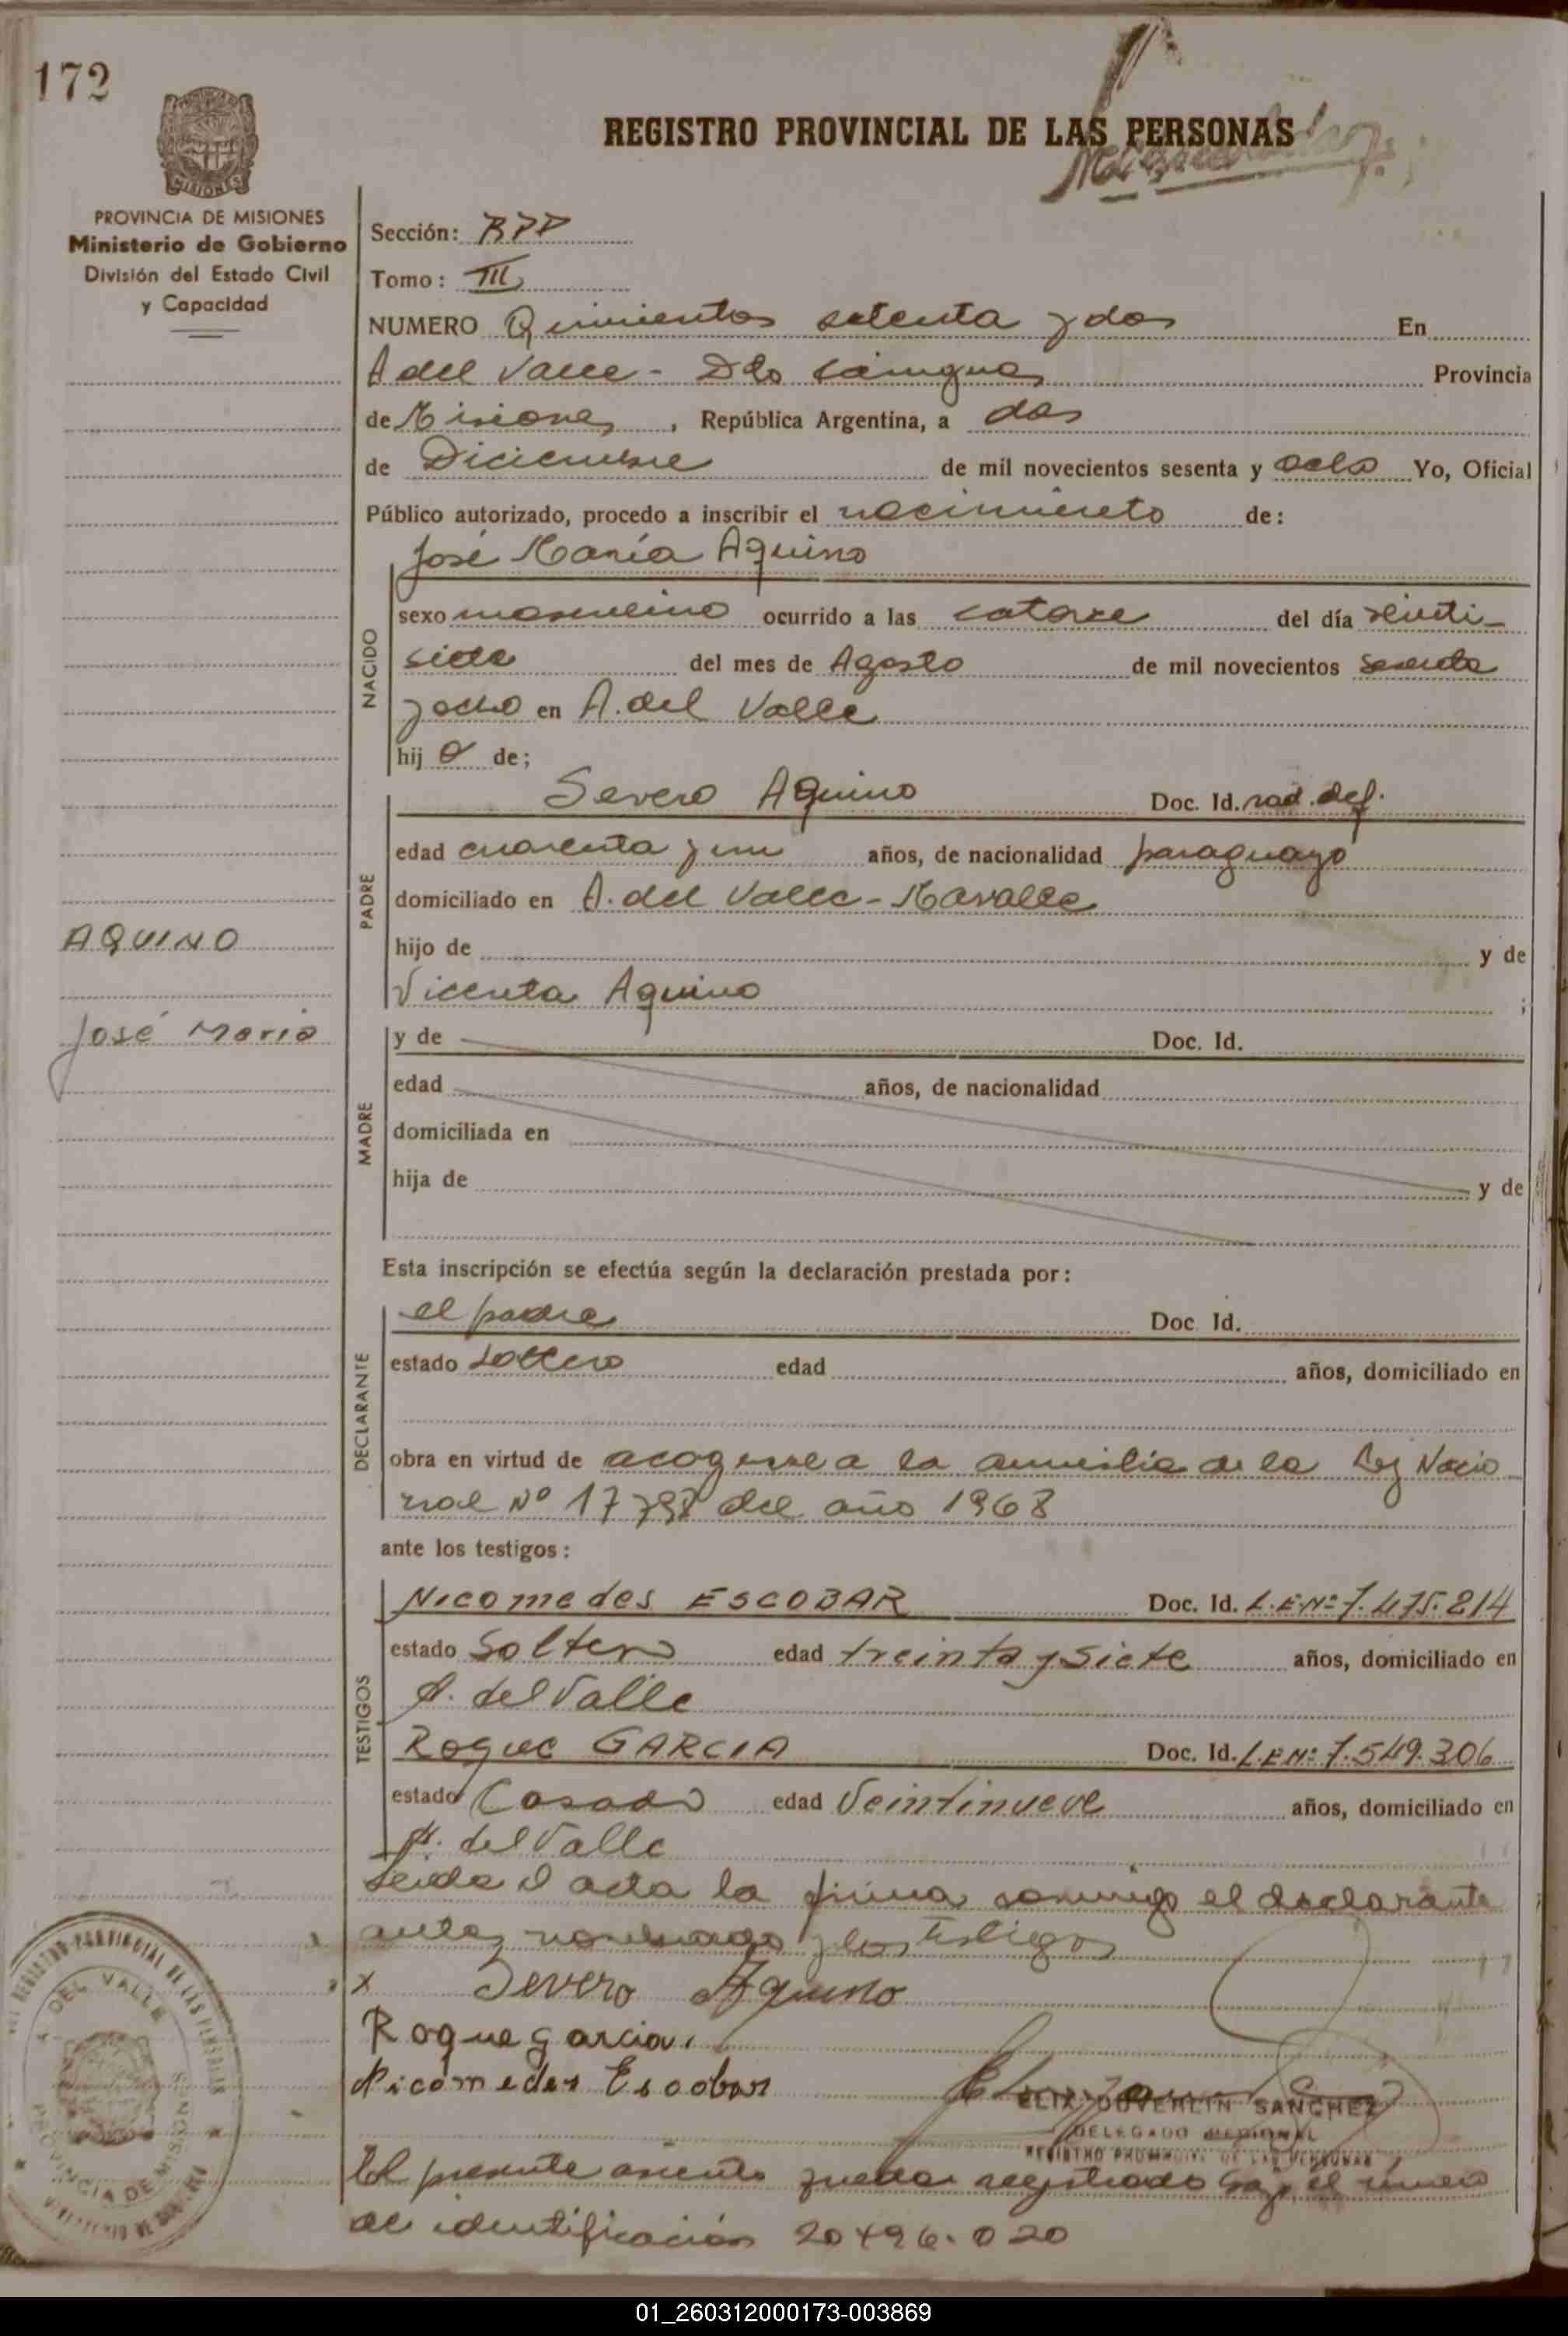 172
REGISTRO PROVINCIAL DE LAS PERSONAS
PROVINCIA DE MISIONES
Ministerio de Gobierno
División del Estado Civil
y Capacidad
Sección:
Tomo: III
NUMERO Quinientos setenta y dos En
A del Valle - Dto Cainguas Provincia
de Misiones, República Argentina, a dos
de Diciembre de mil novecientos sesenta y ocho Yo, Oficial
Público autorizado, procedo a inscribir el nacimiento de:
José María Aquino
NACIDO
sexo masculino ocurrido a las catorce del día veinti-
siete del mes de Agosto de mil novecientos sesenta
y ocho en A. del Valle
hij o de;
Severo Aquino Doc. Id. rad. def.
PADRE
edad cuarenta y un años, de nacionalidad paraguayo
domiciliado en A. del Valle -
hijo de y de
Vicenta Aquino ;
AQUINO
José Maria
MADRE
y de Doc. Id.
edad años, de nacionalidad
domiciliada en
hija de y de
Esta inscripción se efectúa según la declaración prestada por:
DECLARANTE
el padre Doc Id.
estado soltero edad años, domiciliado en
obra en virtud de acogerse a la amnistia de la Ley Nacio
nal Nº 17798 del año 1968
ante los testigos:
TESTIGOS
Nicomedes ESCOBAR Doc. Id. L.E.Nº 7.475.214
estado Soltero edad treinta y siete años, domiciliado en
A. del Valle
Roque GARCIA Doc. Id. L.E.Nº 7.549.306
estado Casado edad Veintinueve años, domiciliado en
A. del Valle
Leida el acta la firma conmigo el declarante
antes nombrado y los testigos
x Severo Aquino
Roque garcia.
Nicomedes Escobar
SANCHEZ
DELEGADO REGIONAL
REGISTRO PROVINCIAL DE LAS PERSONAS
REGISTRO PROVINCIAL DE LAS PERSONAS
A. DEL VALLE
PROVINCIA DE MISIONES
El presente asiento queda registrado bajo el número
de identificación 20496.020
01_260312000173-003869